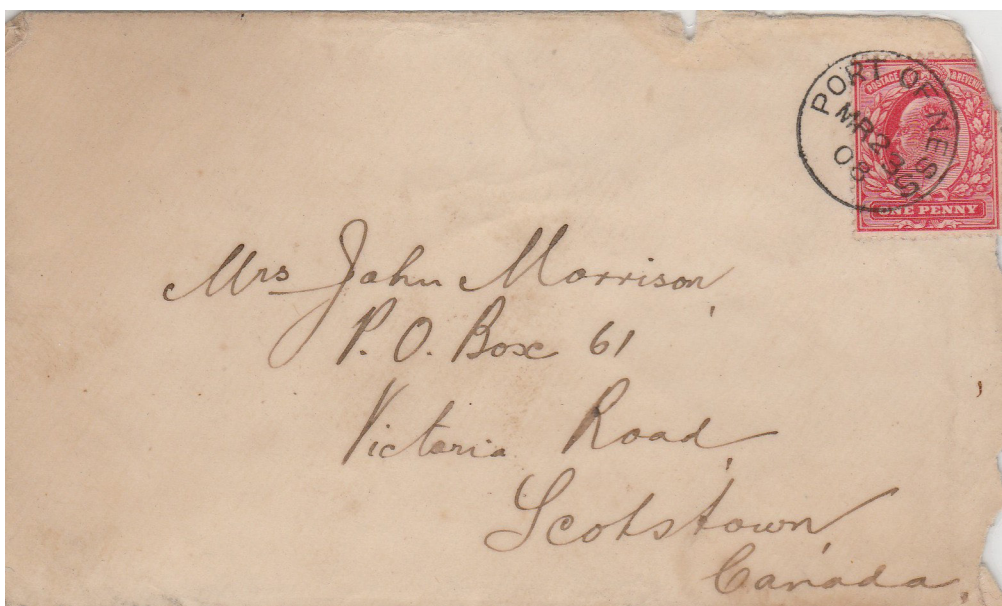 PORT OF NESS
MR 23
08
POSTAGE & REVENUE
ONE PENNY
Mrs John Morrison,
P. O. Box 61
Victoria Road,
Scotstown,
Canada.